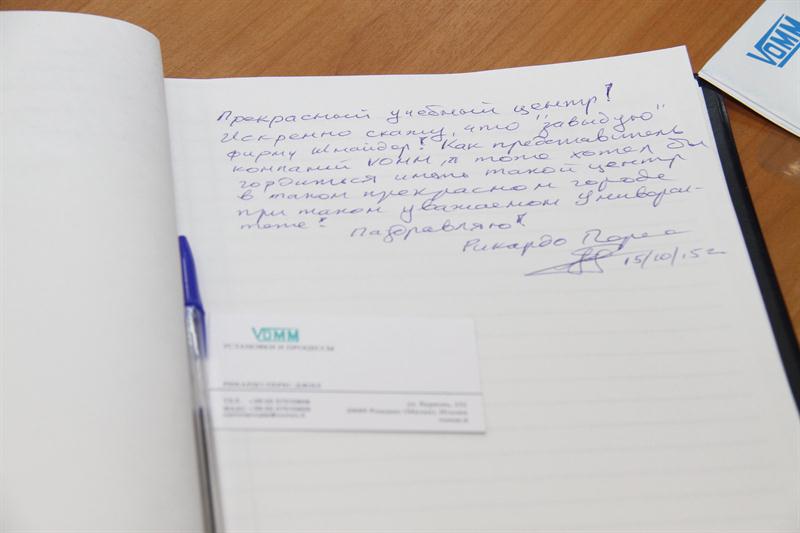 Прекрасный учебный центр!
Искренно скажу, что "завыдую"
фирму Шнайдер! Как представитель
компаний VOMM, я тоже хотел бы
гордиться иметь такой центр
в таком прекрасном городе
при таком уважаемом Универси-
тете! Паздравляю!
Рикардо Перес
15/10/15г
VOMM
УСТАНОВКИ И ПРОЦЕССЫ
VOMM